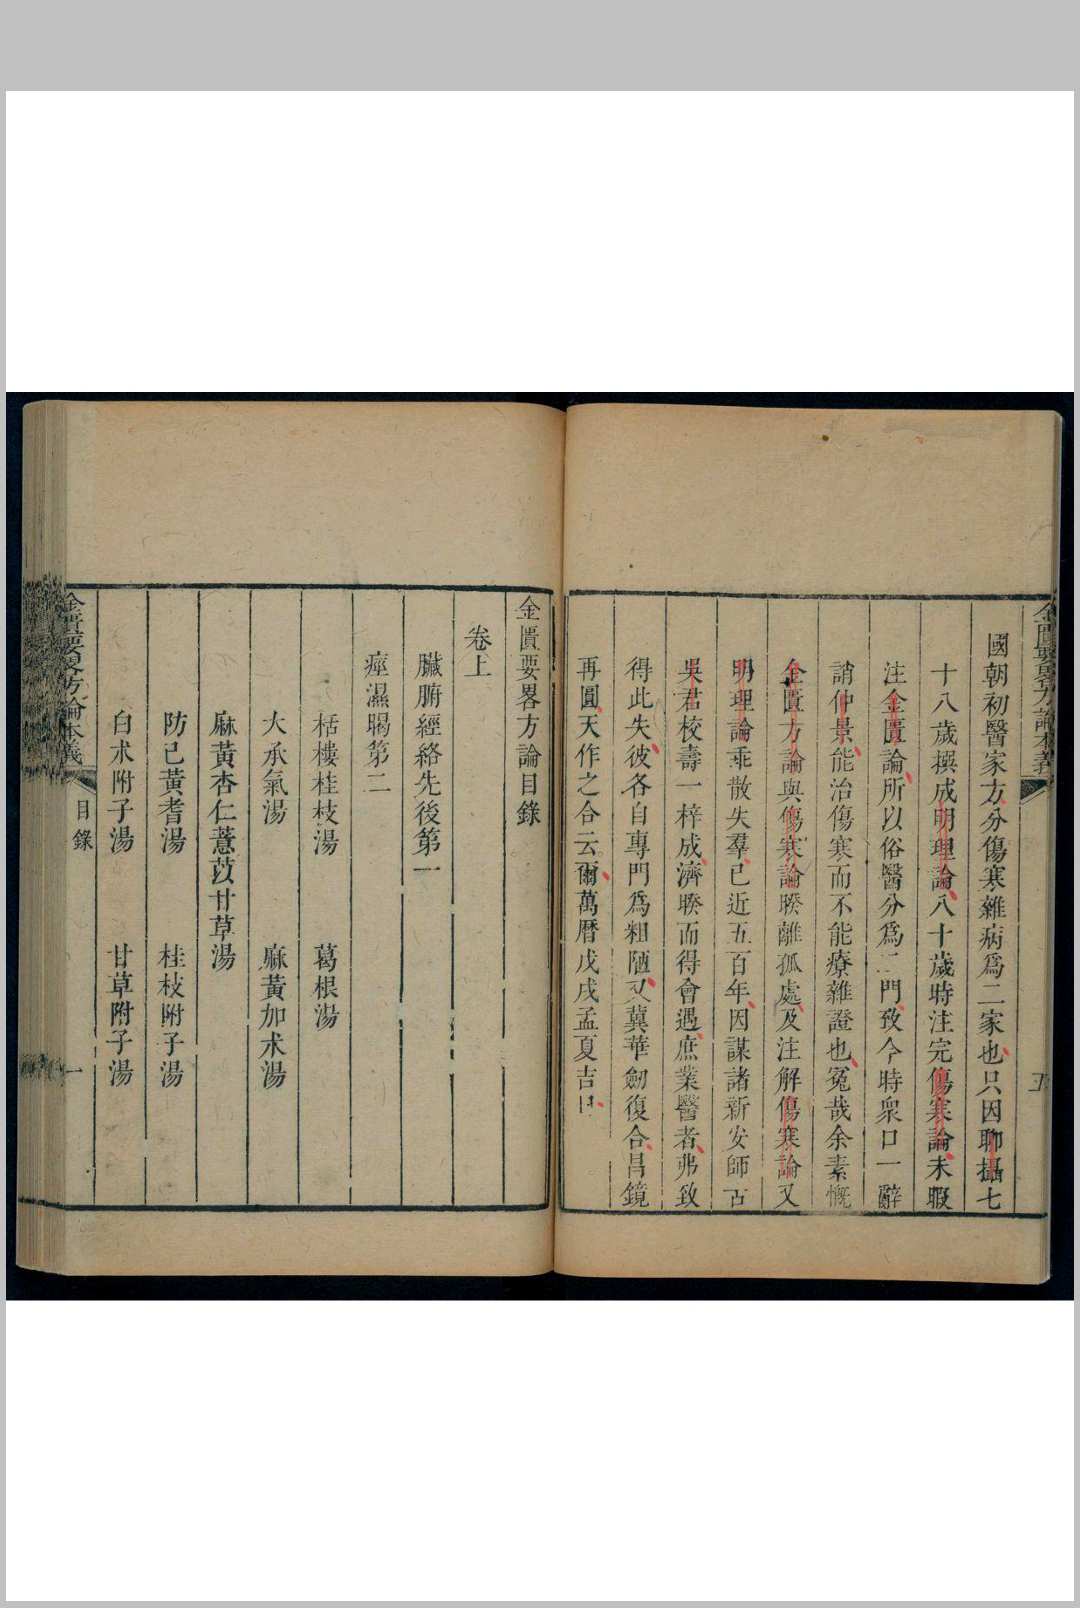 國朝初醫家方分傷寒雜病爲二家也只因聊攝七
十八歲撰成明理論八十歲時注完傷寒論未暇
注金匱論所以俗醫分爲二門致今時衆口一辭
誚仲景能治傷寒而不能療雜證也冤哉余素慨
金匱方論與傷寒論睽離孤處及注解傷寒論又
明理論乖散失羣已近五百年因謀諸新安師古
吳君校壽一梓成濟睽而得會遇庶業醫者弗致
得此失彼各自專門爲粗陋又冀華劒復合昌鏡
再圓天作之合云爾萬曆戊戌孟夏吉日
金匱要畧方論目錄
卷上
臟腑經絡先後第一
痙濕暍第二
栝樓桂枝湯 葛根湯
大承氣湯 麻黃加朮湯
麻黃杏仁薏苡甘草湯
防已黃耆湯 桂枝附子湯
白朮附子湯 甘草附子湯
金匱要畧方論本義 目錄 一